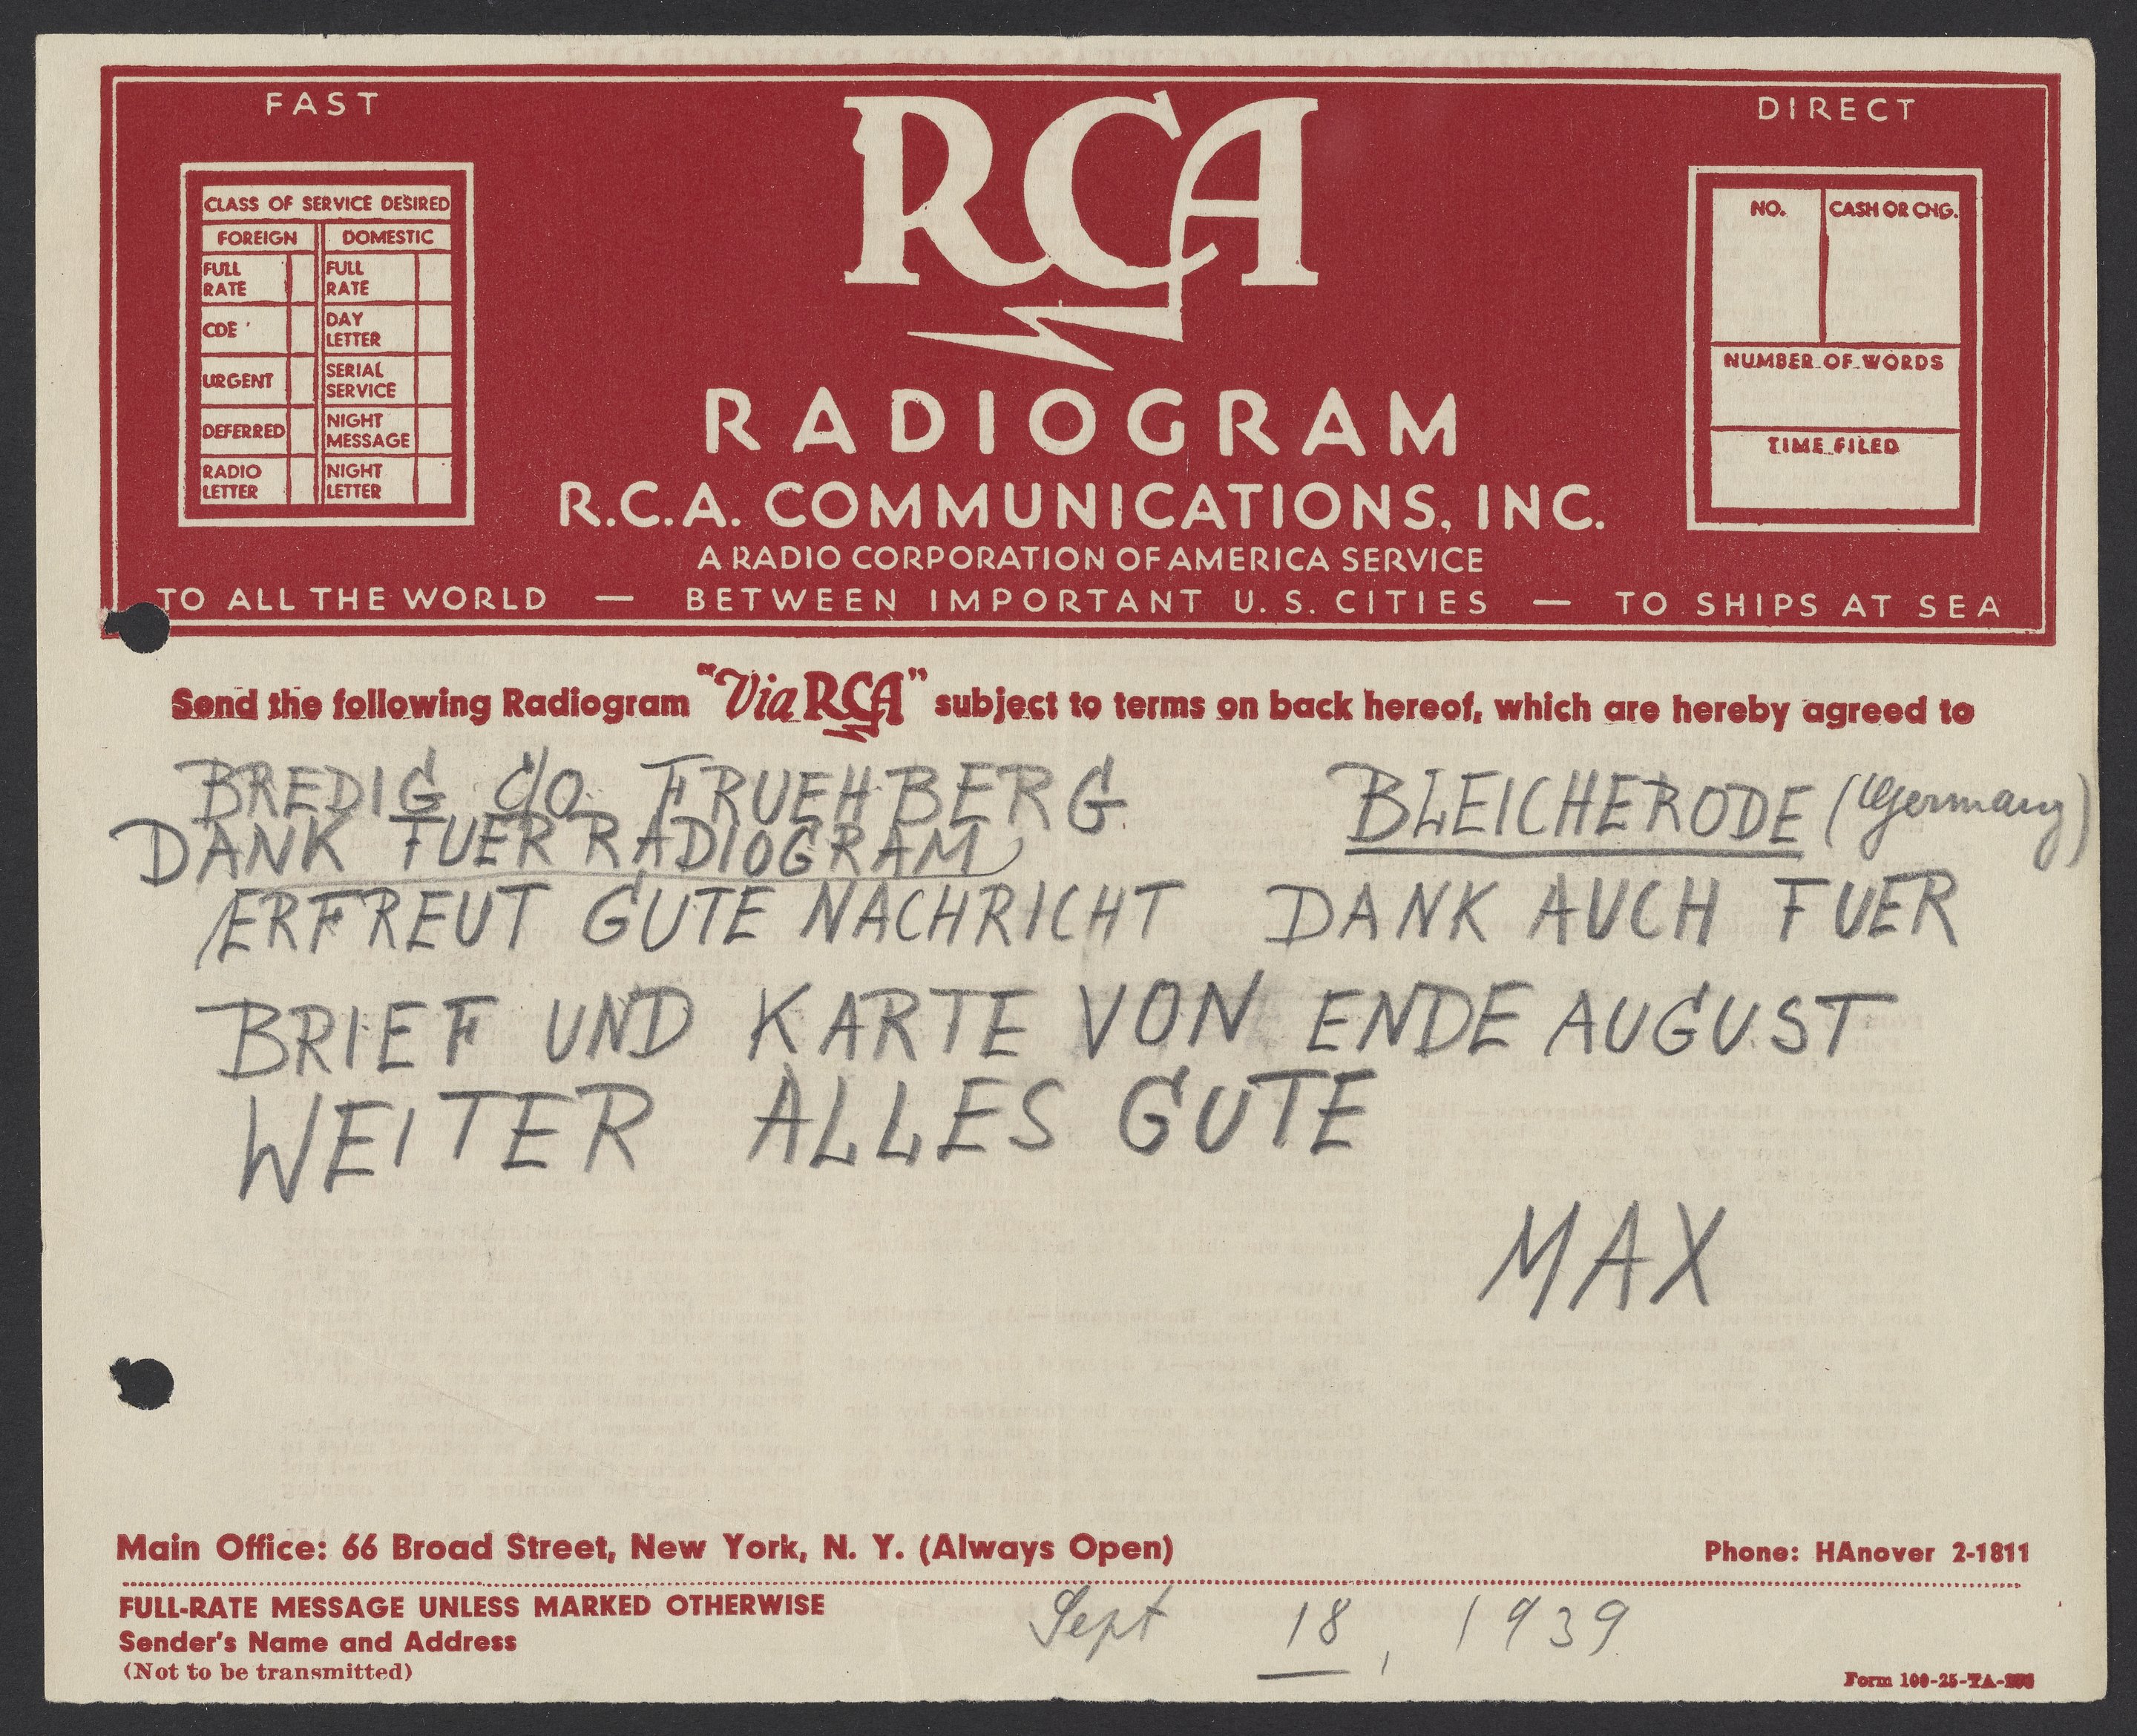 FAST
RCA
DIRECT
CLASS OF SERVICE DESIRED
FOREIGN DOMESTIC
FULL RATE FULL RATE
CDE DAY LETTER
URGENT SERIAL SERVICE
DEFERRED NIGHT MESSAGE
RADIO LETTER NIGHT LETTER
NO. CASH OR CHG.
NUMBER OF WORDS
TIME FILED
RADIOGRAM
R.C.A. COMMUNICATIONS, INC.
A RADIO CORPORATION OF AMERICA SERVICE
TO ALL THE WORLD — BETWEEN IMPORTANT U. S. CITIES — TO SHIPS AT SEA
Send the following Radiogram "Via RCA" subject to terms on back hereof, which are hereby agreed to
BREDIG c/o FRUEHBERG BLEICHERODE (Germany)
DANK FUER RADIOGRAM
ERFREUT GUTE NACHRICHT DANK AUCH FUER
BRIEF UND KARTE VON ENDE AUGUST
WEITER ALLES GUTE
MAX
Main Office: 66 Broad Street, New York, N. Y. (Always Open) Phone: HAnover 2-1811
FULL-RATE MESSAGE UNLESS MARKED OTHERWISE
Sept 18, 1939
Sender's Name and Address
(Not to be transmitted)
Form 100-25-TA-